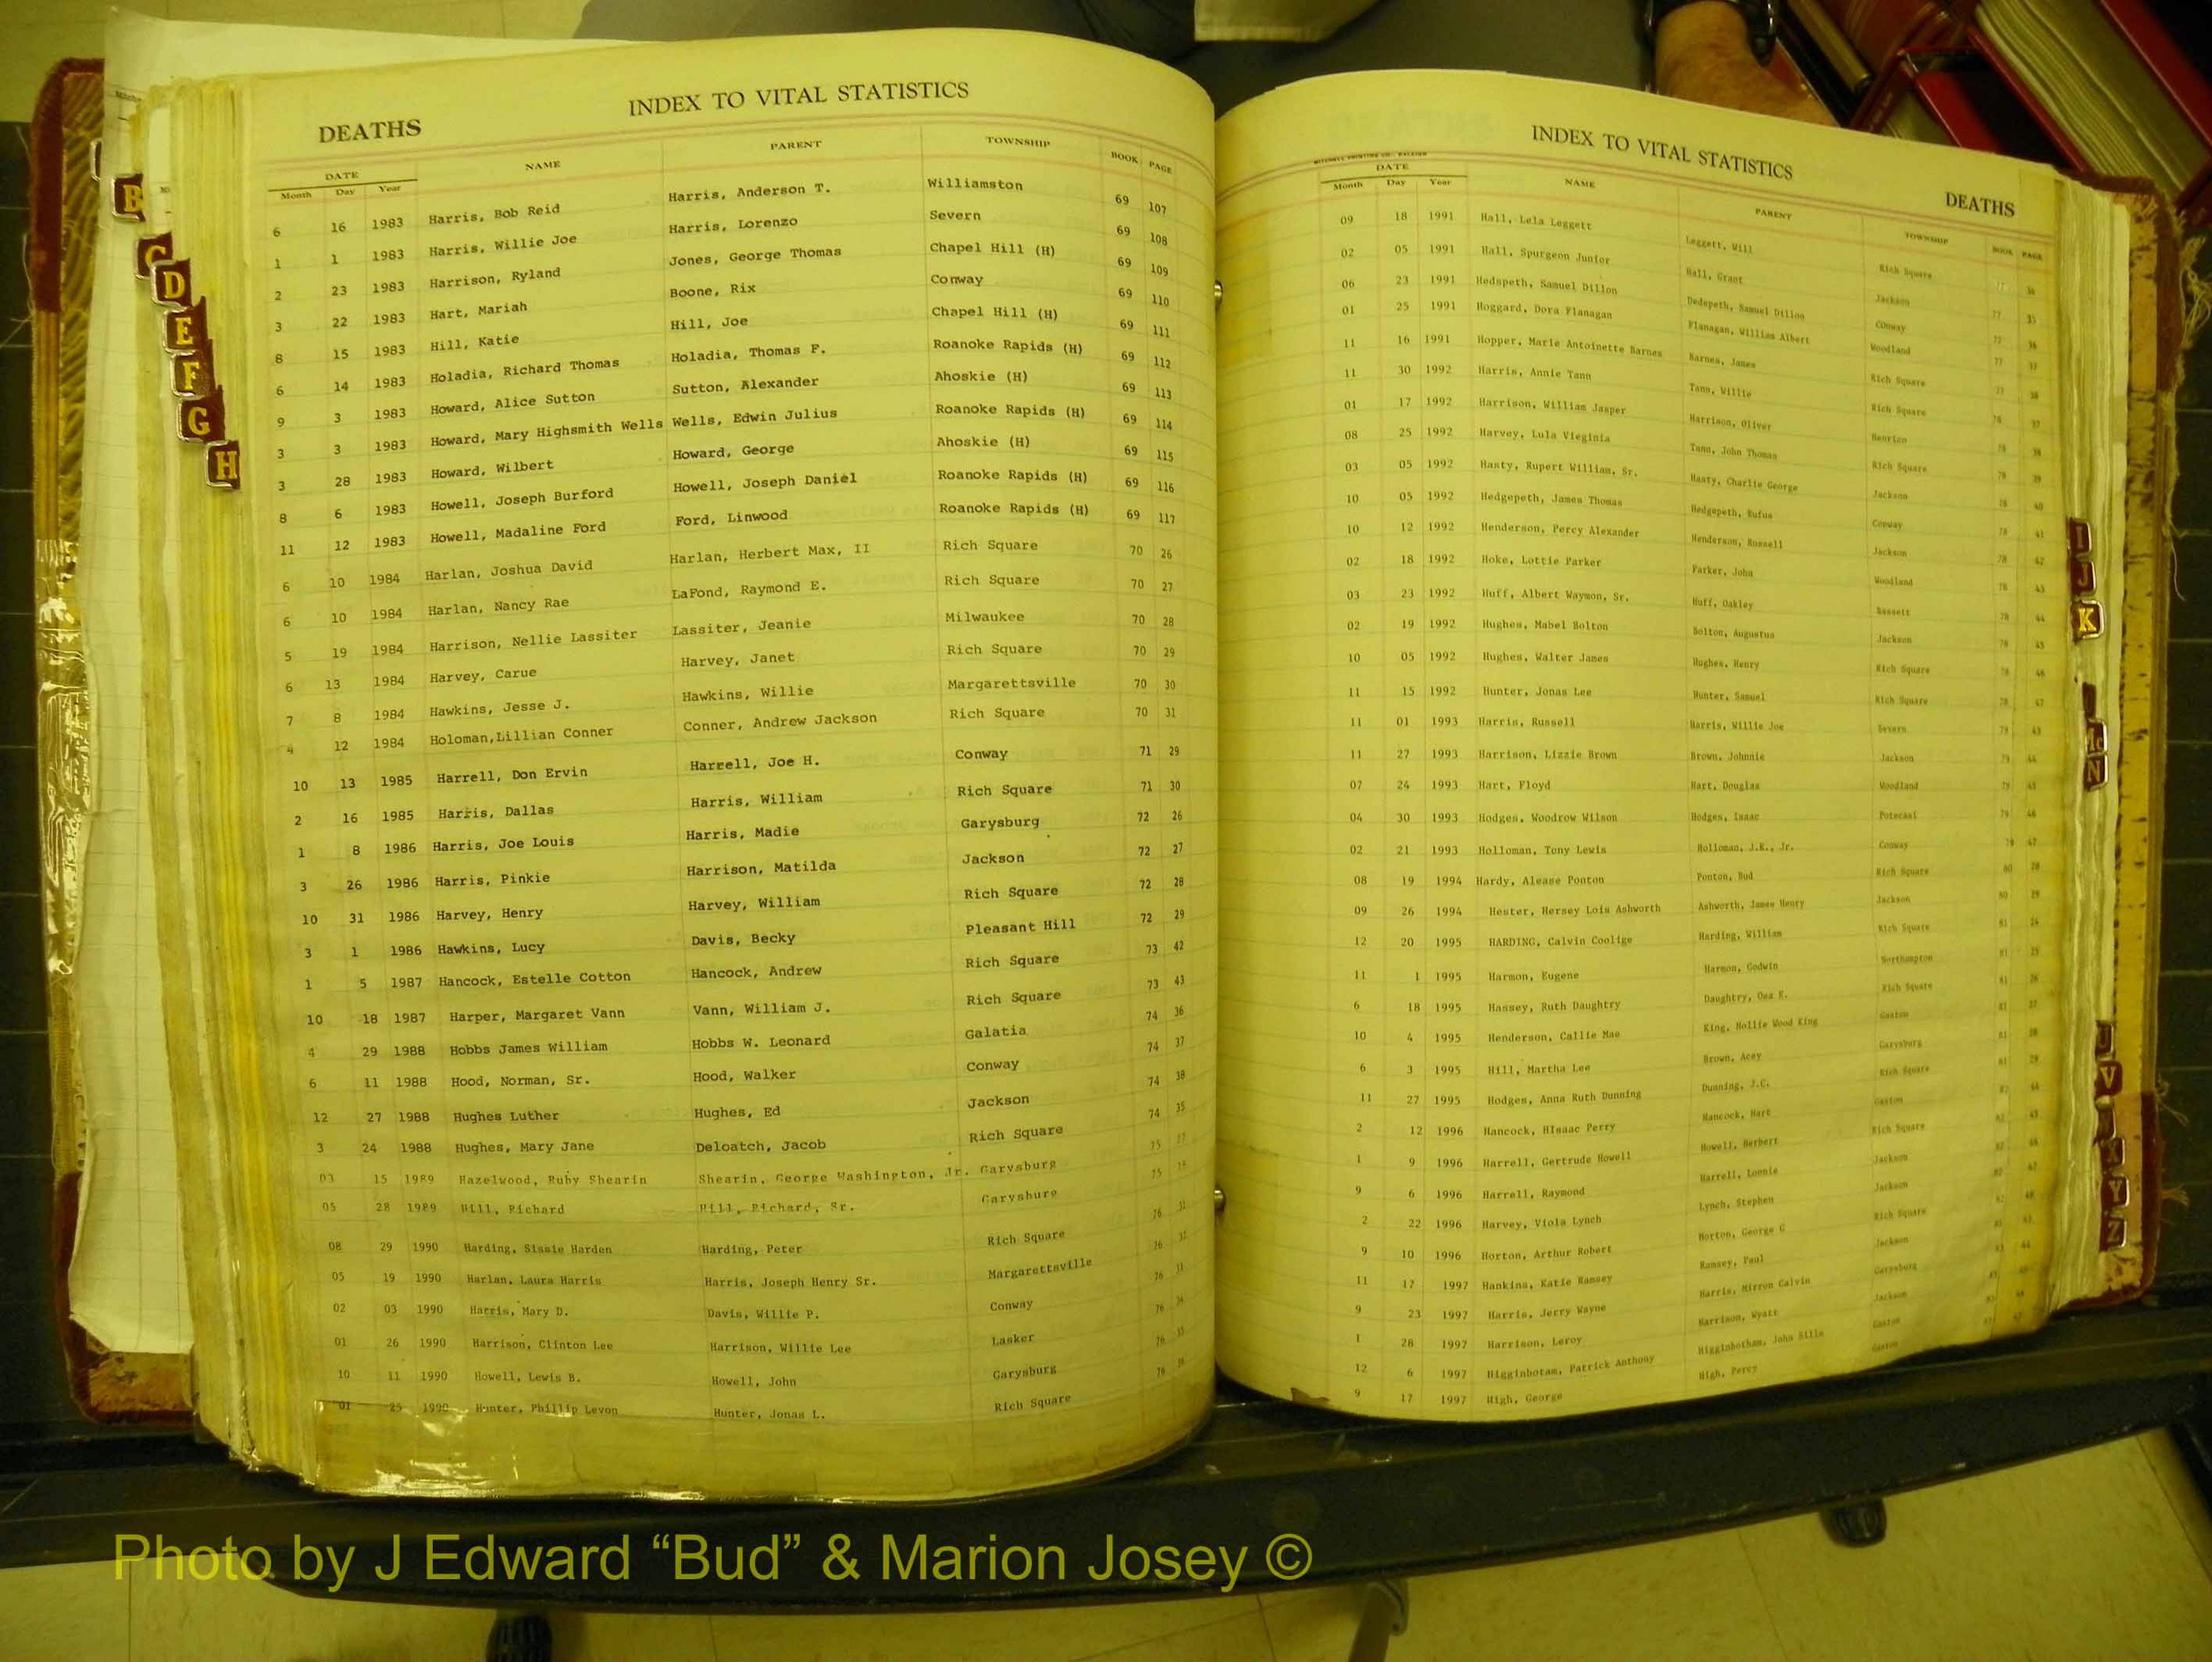 DEATHS
INDEX TO VITAL STATISTICS
DATE NAME PARENT TOWNSHIP BOOK PAGE
Month Day Year
6 16 1983 Harris, Bob Reid Harris, Anderson T. Williamston 69 107
1 1 1983 Harris, Willie Joe Harris, Lorenzo Severn 69 108
2 23 1983 Harrison, Ryland Jones, George Thomas Chapel Hill (H) 69 109
3 22 1983 Hart, Mariah Boone, Rix Conway 69 110
8 15 1983 Hill, Katie Hill, Joe Chapel Hill (H) 69 111
6 14 1983 Holadia, Richard Thomas Holadia, Thomas F. Roanoke Rapids (H) 69 112
9 3 1983 Howard, Alice Sutton Sutton, Alexander Ahoskie (H) 69 113
3 3 1983 Howard, Mary Highsmith Wells Wells, Edwin Julius Roanoke Rapids (H) 69 114
3 28 1983 Howard, Wilbert Howard, George Ahoskie (H) 69 115
8 6 1983 Howell, Joseph Burford Howell, Joseph Daniel Roanoke Rapids (H) 69 116
11 12 1983 Howell, Madaline Ford Ford, Linwood Roanoke Rapids (H) 69 117
6 10 1984 Harlan, Joshua David Harlan, Herbert Max, II Rich Square 70 26
6 10 1984 Harlan, Nancy Rae LaFond, Raymond E. Rich Square 70 27
5 19 1984 Harrison, Nellie Lassiter Lassiter, Jeanie Milwaukee 70 28
6 13 1984 Harvey, Carue Harvey, Janet Rich Square 70 29
7 8 1984 Hawkins, Jesse J. Hawkins, Willie Margarettsville 70 30
4 12 1984 Holoman,Lillian Conner Conner, Andrew Jackson Rich Square 70 31
10 13 1985 Harrell, Don Ervin Harrell, Joe H. Conway 71 29
2 16 1985 Harris, Dallas Harris, William Rich Square 71 30
1 8 1986 Harris, Joe Louis Harris, Madie Garysburg 72 26
3 26 1986 Harris, Pinkie Harrison, Matilda Jackson 72 27
10 31 1986 Harvey, Henry Harvey, William Rich Square 72 28
3 1 1986 Hawkins, Lucy Davis, Becky Pleasant Hill 72 29
1 5 1987 Hancock, Estelle Cotton Hancock, Andrew Rich Square 73 42
10 18 1987 Harper, Margaret Vann Vann, William J. Rich Square 73 43
4 29 1988 Hobbs James William Hobbs W. Leonard Galatia 74 36
6 11 1988 Hood, Norman, Sr. Hood, Walker Conway 74 37
12 27 1988 Hughes Luther Hughes, Ed Jackson 74 38
3 24 1988 Hughes, Mary Jane Deloatch, Jacob Rich Square 74 35
03 15 1989 Hazelwood, Ruby Shearin Shearin, George Washington, Jr. Garysburg 75
05 28 1989 Hill, Richard Hill, Richard, Sr. Garysburg 75
08 29 1990 Harding, Sissie Harden Harding, Peter Rich Square 76
05 19 1990 Harlan, Laura Harris Harris, Joseph Henry Sr. Margarettsville 76
02 03 1990 Harris, Mary D. Davis, Willie P. Conway 76
01 26 1990 Harrison, Clinton Lee Harrison, Willie Lee Lasker 76
10 11 1990 Howell, Lewis B. Howell, John Garysburg 76
01 25 1990 Hunter, Phillip Levon Hunter, Jonas L. Rich Square 76
INDEX TO VITAL STATISTICS
DEATHS
DATE NAME PARENT TOWNSHIP BOOK PAGE
Month Day Year
09 18 1991 Hall, Lela Leggett Leggett, Will Rich Square
02 05 1991 Hall, Spurgeon Junior Hall, Grant Jackson 77
06 23 1991 Hedspeth, Samuel Dillon Dedspeth, Samuel Dillon COnway 77
01 25 1991 Hoggard, Dora Flanagan Flanagan, William Albert Woodland 77
11 16 1991 Hopper, Marie Antoinette Barnes Barnes, James Rich Square 77
11 30 1992 Harris, Annie Tann Tann, Willie Rich Square 78
01 17 1992 Harrison, William Jasper Harrison, Oliver Henrico 78
08 25 1992 Harvey, Lula Vieginia Tann, John Thomas Rich Square 78
03 05 1992 Hasty, Rupert William, Sr. Hasty, Charlie George Jackson 78
10 05 1992 Hedgepeth, James Thomas Hedgepeth, Rufus Conway 78
10 12 1992 Henderson, Percy Alexander Henderson, Russell Jackson 78
02 18 1992 Hoke, Lottie Parker Parker, John Woodland 78
03 23 1992 Huff, Albert Waymon, Sr. Huff, Oakley Bassett 78
02 19 1992 Hughes, Mabel Bolton Bolton, Augustus Jackson 78
10 05 1992 Hughes, Walter James Hughes, Henry Rich Square 78
11 15 1992 Hunter, Jonas Lee Hunter, Samuel Rich Square 78
11 01 1993 Harris, Russell Harris, Willie Joe Severn 79
11 27 1993 Harrison, Lizzie Brown Brown, Johnnie Jackson 79
07 24 1993 Hart, Floyd Hart, Douglas Woodland 79
04 30 1993 Hodges, Woodrow Wilson Hodges, Isaac Potecasi 79
02 21 1993 Holloman, Tony Lewis Holloman, J.K., Jr. Conway 79
08 19 1994 Hardy, Alease Ponton Ponton, Bud Rich Square 80
09 26 1994 Hester, Hersey Lois Ashworth Ashworth, James Henry Jackson 80
12 20 1995 HARDING, Calvin Coolige Harding, William Rich Square 81
11 1 1995 Harmon, Eugene Harmon, Godwin Northampton 81
6 18 1995 Hassey, Ruth Daughtry Daughtry, Oea K. Rich Square 81
10 4 1995 Henderson, Callie Mae King, Hollie Wood King Gaston 81
6 3 1995 Hill, Martha Lee Brown, Acey Garysburg 81
11 27 1995 Hodges, Anna Ruth Dunning Dunning, J.C. Rich Square 81
2 12 1996 Hancock, HIsaac Perry Hancock, Hart Gaston 82
1 9 1996 Harrell, Gertrude Howell Howell, Herbert Rich Square 82
9 6 1996 Harrell, Raymond Harrell, Lonnie Jackson 82
2 22 1996 Harvey, Viola Lynch Lynch, Stephen Jackson
9 10 1996 Horton, Arthur Robert Horton, George G Rich Square
11 17 1997 Hankins, Katie Ramsey Ramsey, Paul Jackson
9 23 1997 Harris, Jerry Wayne Harris, Mirron Calvin Garysburg
1 28 1997 Harrison, Leroy Harrison, Wyatt Jackson
12 6 1997 Higginbotam, Patrick Anthony Higginbotham, John Gaston
9 17 1997 High, George High, Percy Gaston
B
C
D
E
F
G
H
I
J
K
Mc
N
U
V
Y
Z
Photo by J Edward “Bud” & Marion Josey ©